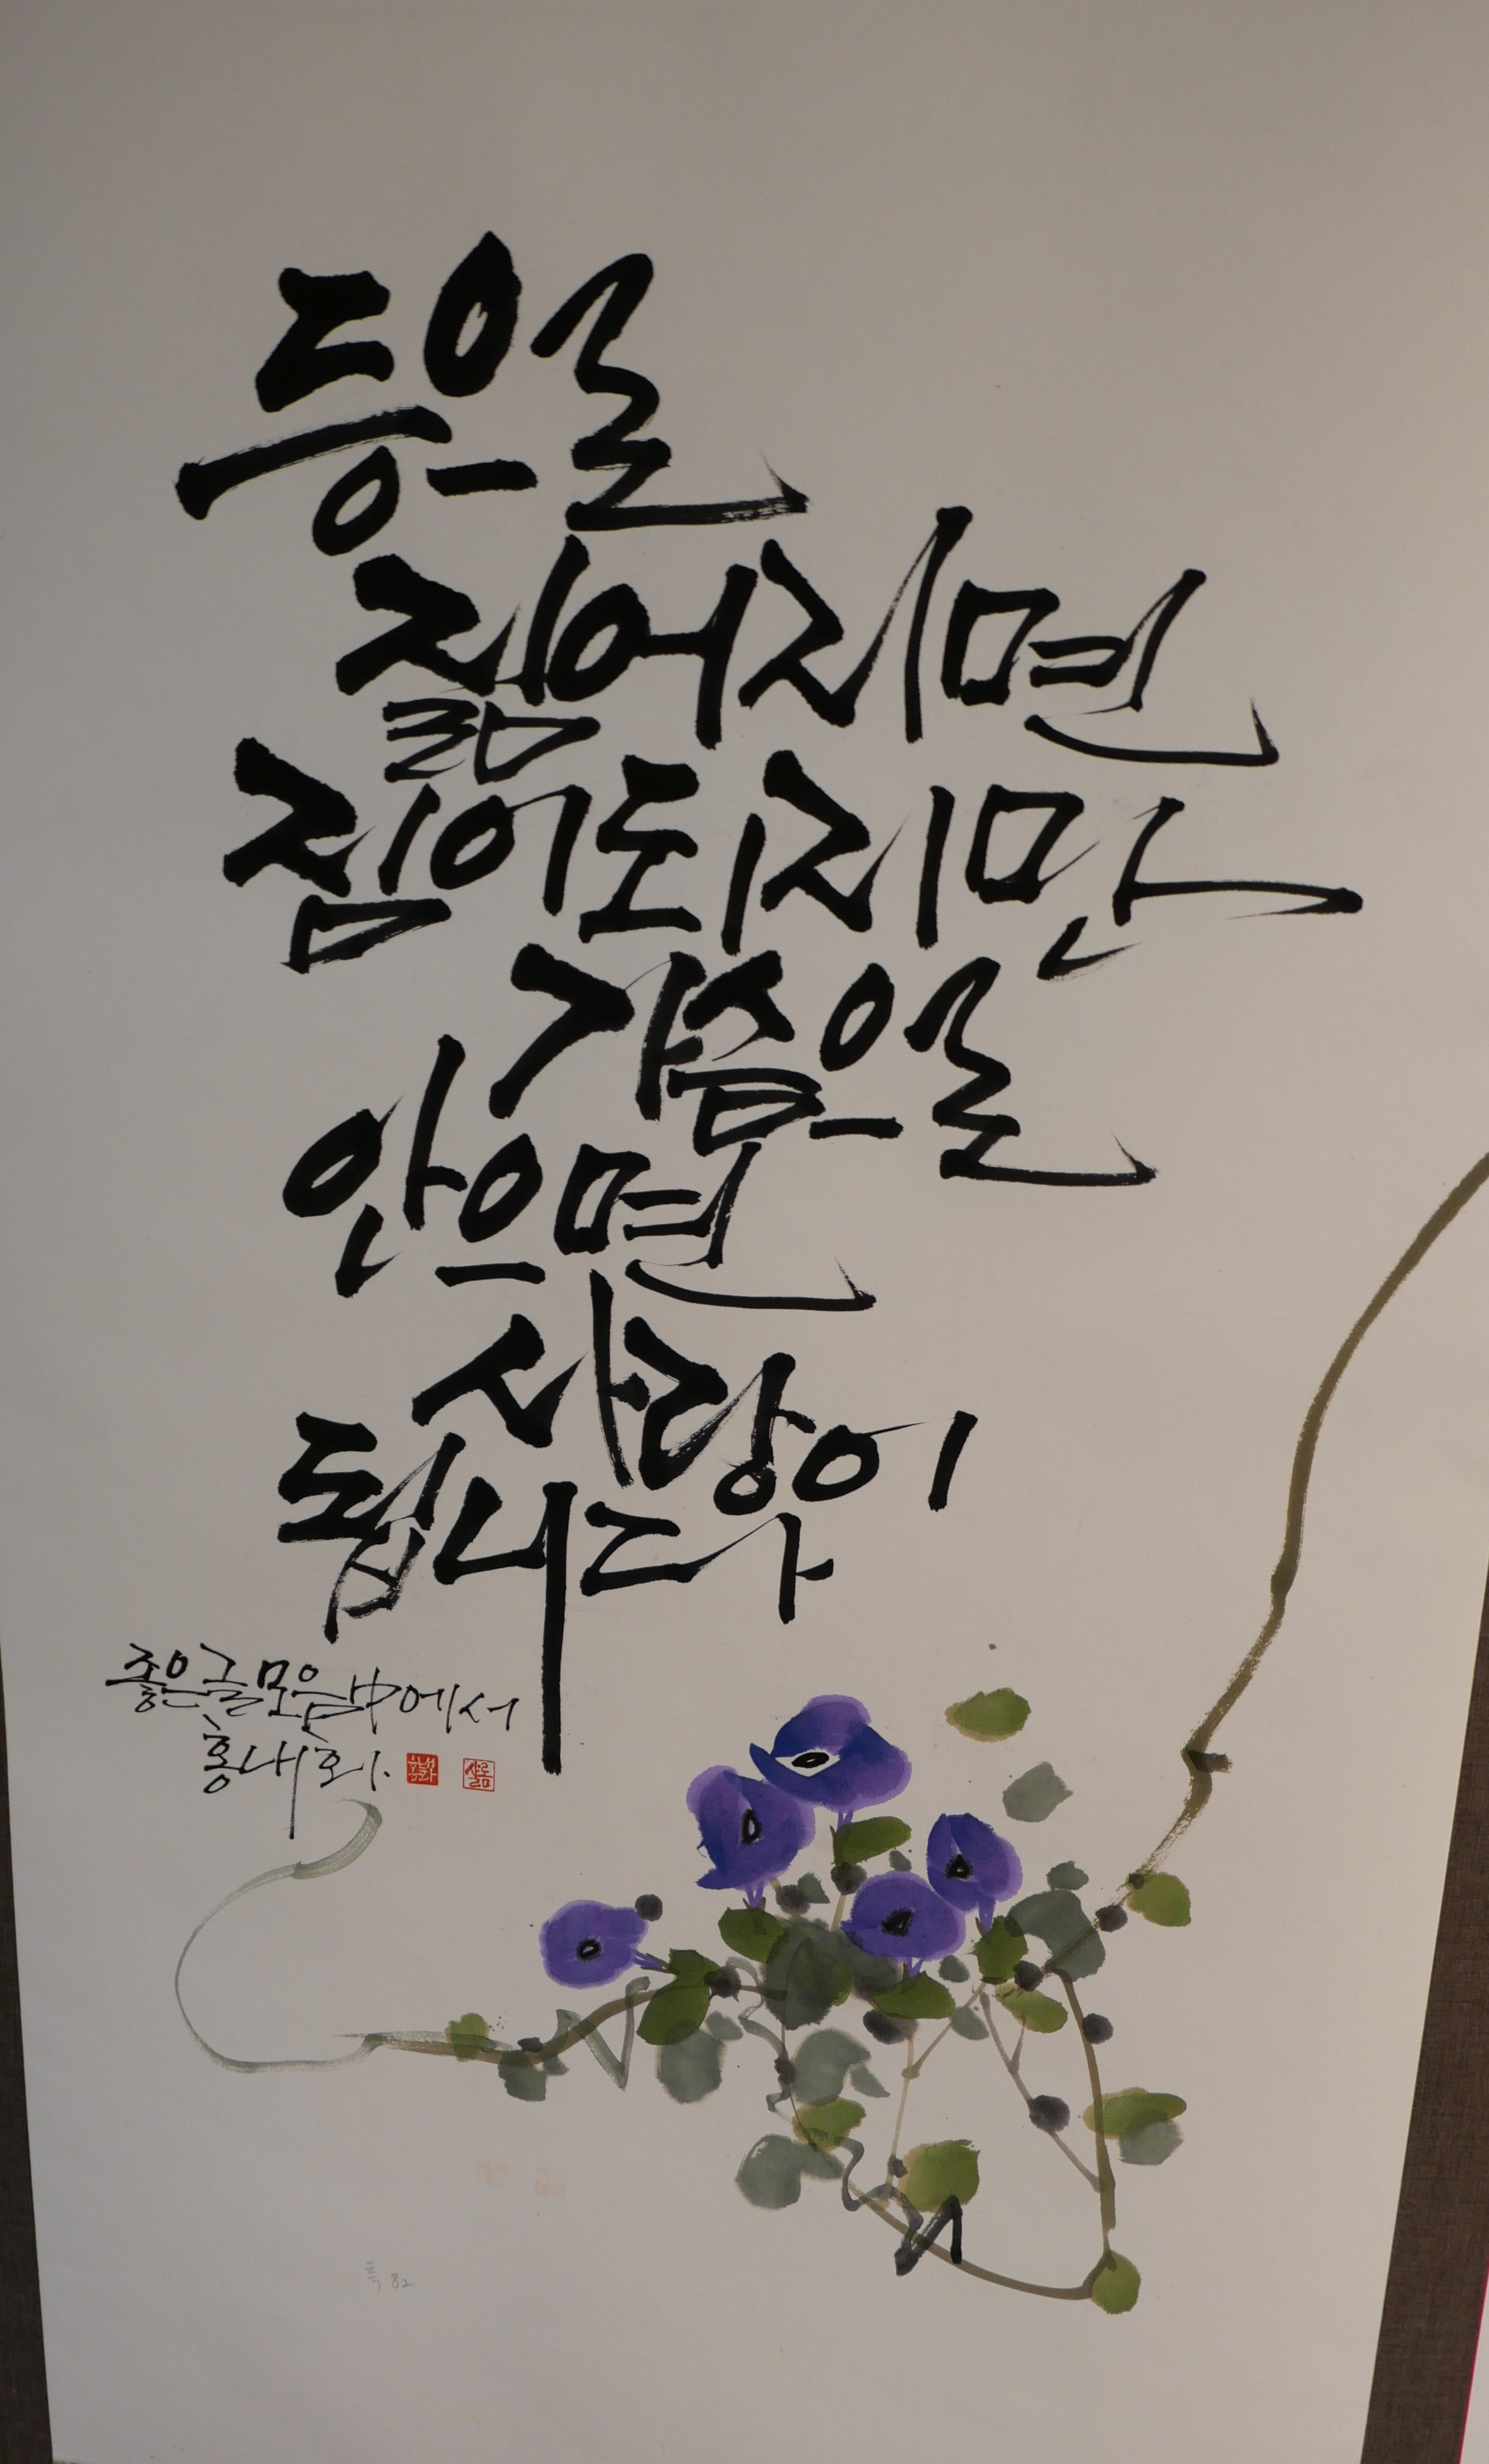 등을
짊어지면
짐이되지만
가슴을
안으면
사랑이
됩니다
좋은글모음中에서
홍내화
특 82